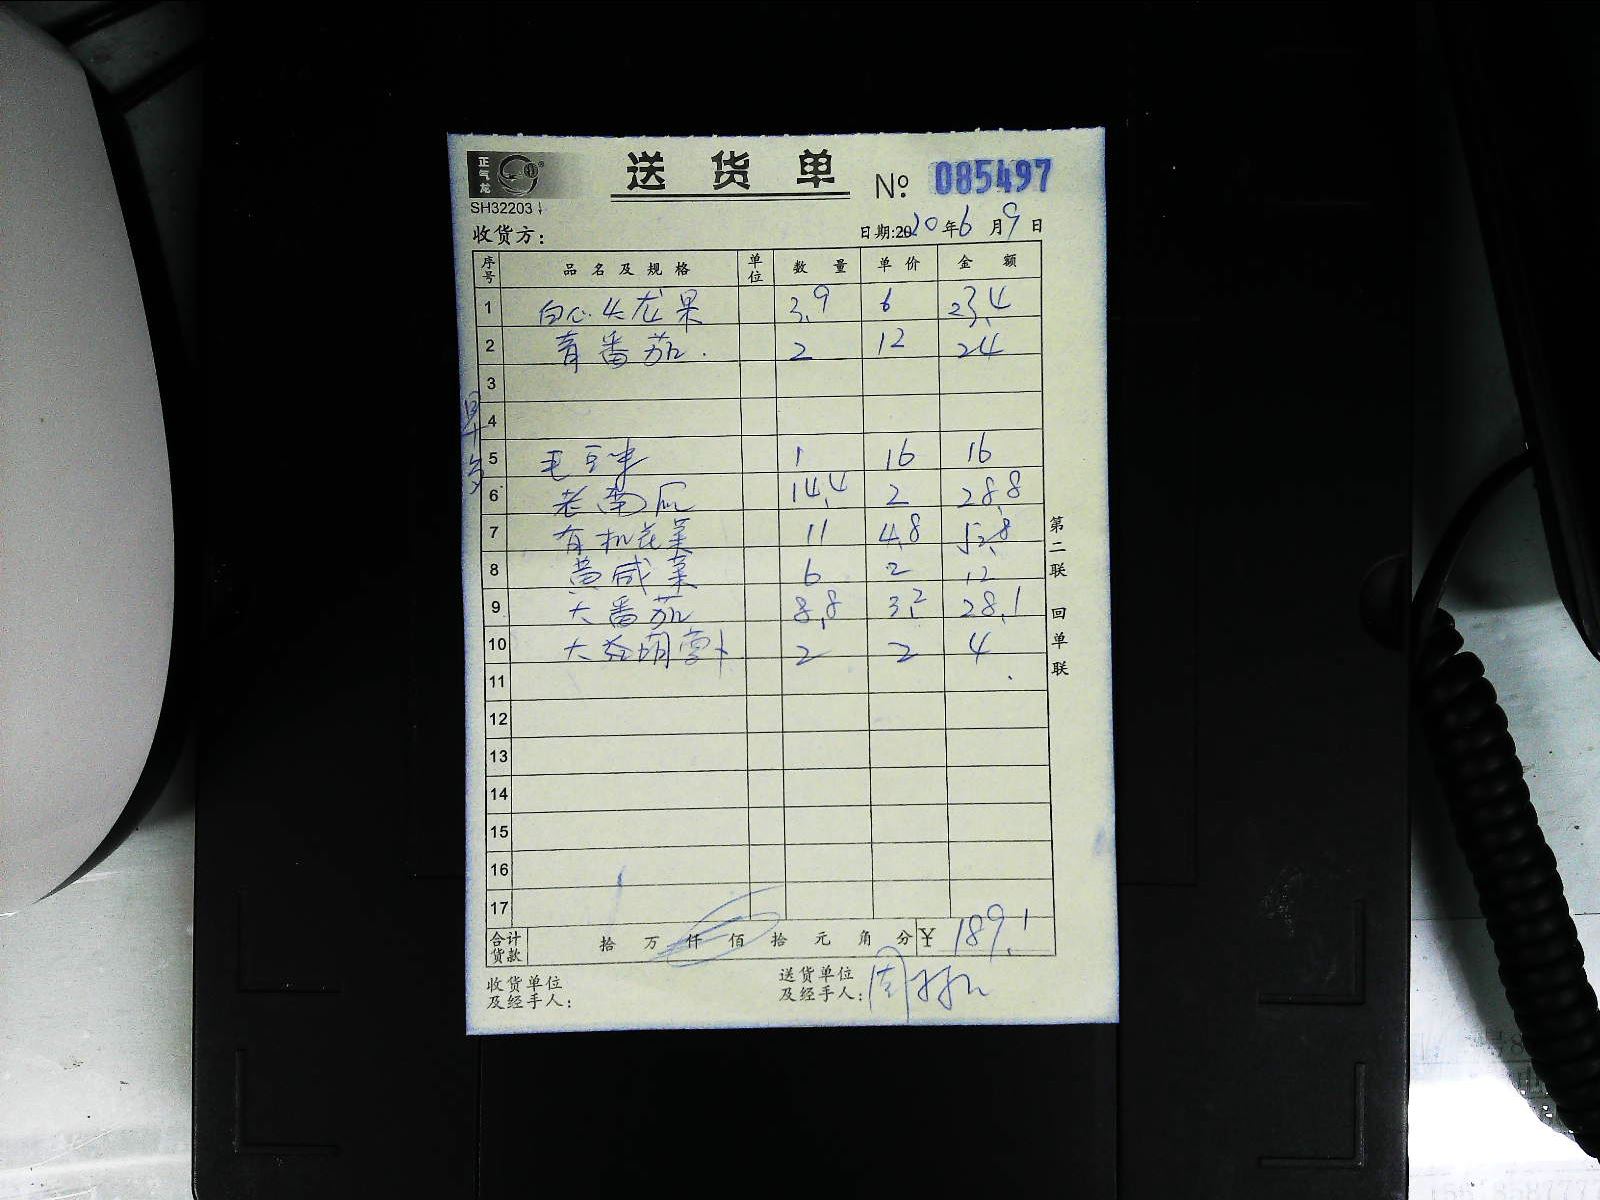 正气龙
SH32203
送货单
№ 085497
收货方:
日期:2020年6月9日
序号 品名及规格 单位 数量 单价 金额
1 白心火龙果 3.9 6 23.4
2 青番茄 2 12 24
3
4
5 毛豆米 1 16 16
6 老南瓜 14.4 2 28.8
7 有机花菜 11 4.8 52.8
8 黄咸菜 6 2 12
9 大番茄 8.8 3.2 28.1
10 大红胡萝卜 2 2 4
11
12
13
14
15
16
17
合计货款 拾 万 仟 佰 拾 元 角 分 ¥ 189.1
收货单位及经手人:
送货单位及经手人: 周
第二联 回单联